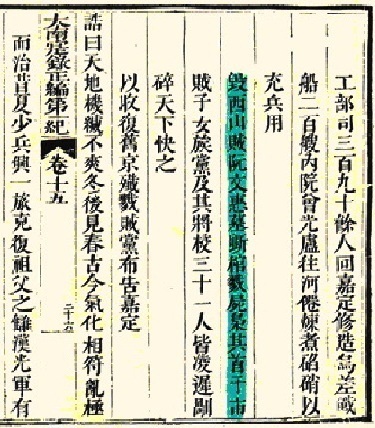 工部司三百九十餘人回嘉定修造烏差戰
船二百艘內院曾光廬往河倦煉煮硝以
充兵用
毀西山賊阮文惠墓斷棺戮屍梟其首于市
賊子女族黨及其將校三十一人皆凌遲剮
碎天下快之
以收復舊京殲戮賊黨布告嘉定
誥曰天地機緘不爽冬後見春古今氣化相符亂極
大南寔錄正編第一紀 卷十五
而治昔夏少兵興一旅克復祖父之讎漢光車有